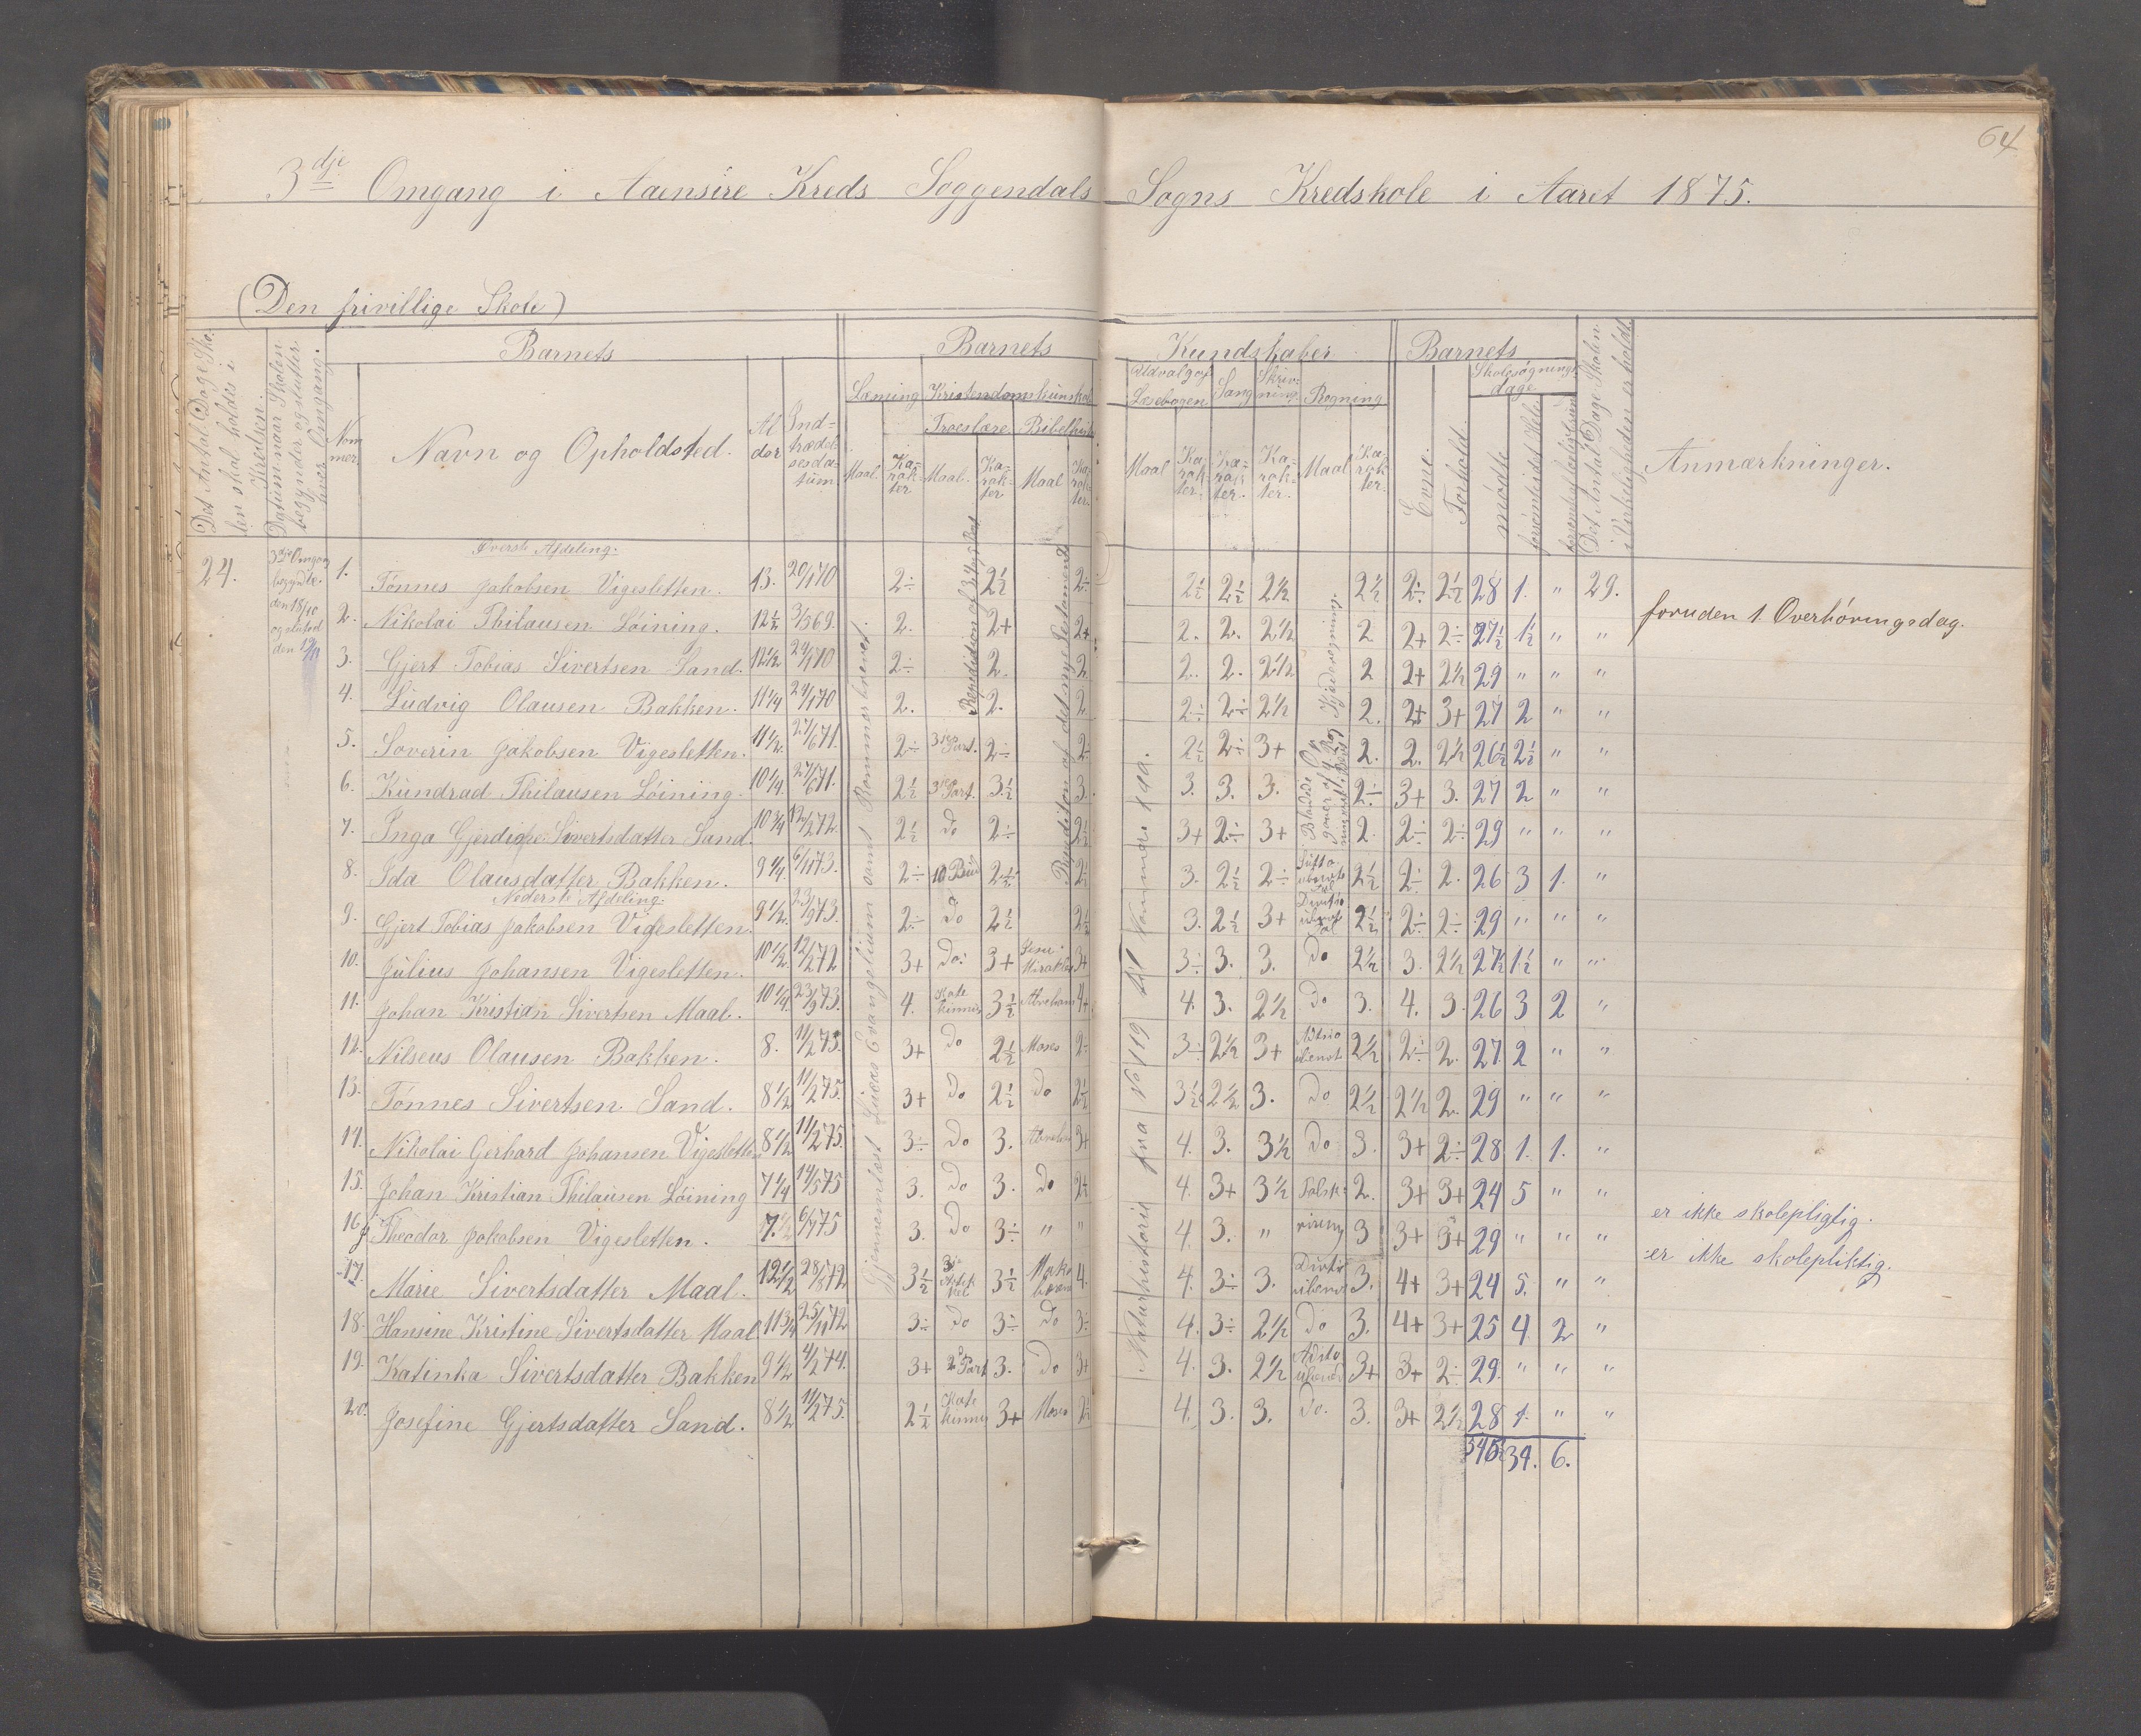 64
3dje Omgang i Aaensire Kreds Soggendals Sogns Kredskole i Aaret 1875.
(Den frivillige Skole)
Det Antal Dage Skolen skal holdes i Kredsen.
Datum naar Skolen begynder og slutter hver Omgang.
Barnets
Nommer.
Navn og Opholdsted.
Alder
Indtrædelsesdatum.
Barnets Kundskaber
Læsning Kristendomskunskab
Troeslære. Bibelhist
Maal. Karakter Maal. Karakter Maal Karakter
Udvalg af Læsebogen Sang Skrivning Regning
Maal Karakter. Karakter. Karakter. Maal Karakter.
Barnets
Evne. Forhold.
Skolesøgningsdage
mødte
forsømte
Det Antal Dage Skolen i Virkeligheden er holdt.
Anmærkninger.
24.
3dje Omgang begyndte den 18/10 og sluttet den 19/11
Øverste Afdeling.
1. Tønnes Jakobsen Vigesletten. 13. 20/1 70 2÷ 2½ 2÷ 2½ 2½ 2½ 2½ 2÷ 2½ 28 1. " 29.
foruden 1 Overhøringsdag.
2. Nikolai Thilausen Løining. 12½ 3/5 69. 2. 2+ 2+ 2. 2. 2½ 2 2+ 2÷ 27½ 1½ " "
3. Gjert Tobias Sivertsen Sand. 12½ 24/1 70 2÷ 2. 2 2. 2. 2½ 2 2+ 2½ 29 " " "
4. Ludvig Olausen Bakken. 11¼ 24/1 70 2. 2. 2 2÷ 2÷ 2½ 2. 2+ 3+ 27 2 " "
5. Soverin Jakobsen Vigesletten. 11½ 27/6 71. 2÷ 3die Part. 2÷ 2÷ 2½ 2÷ 3+ 2. 2. 2½ 26½ 2½ " "
6. Kundrad Thilausen Løining. 10¼ 27/6 71. 2½ 3die Part. 3½ 3. 3. 3. 3. 2÷ 3+ 3. 27 2 " "
7. Inga Gjerdine Sivertsdatter Sand. 10¾ 12/2 72. 2½ do 2÷ 2½ 3+ 2÷ 3+ 2. 2÷ 2÷ 29 " " "
8. Ida Olausdatter Bakken. 9¼ 6/11 73. 2÷ 10 Bud 2½ 2½ 3. 2½ 2÷ 2½ 2÷ 2. 26 3 1. "
Nederste Afdeling.
9. Gjert Tobias Jakobsen Vigesletten. 9½ 23/9 73. 2÷ Do 2½ 2½ 3. 2½ 3+ 2½ 2÷ 2÷ 29 " " "
10. Julius Johansen Vigesletten. 10½ 12/2 72 3+ Do. 3+ Jesu Mirakler 3+ 3÷ 3. 3. Do 2½ 3. 2½ 27½ 1½ " "
11. Johan Kristian Sivertsen Maal. 10¼ 23/9 73. 4. 3½ Abraham 4+ 4. 3. 2½ do 3. 4. 3. 26 3 2 "
12. Nilseus Olausen Bakken. 8. 11/2 75. 3+ do 2½ Moses 2÷ 3÷ 2½ 3+ 2½ 2÷ 2. 27 2 " "
13. Tønnes Sivertsen Sand. 8½ 11/2 75. 3+ do 2½ do 2½ 3½ 2½ 3. do 2½ 2½ 2. 29 " " "
14. Nikolai Gerhard Johansen Vigesletten 8½ 11/2 75. 3÷ Do 3. 3+ 4. 3. 3½ Do 3. 3+ 2÷ 28 1. 1. "
15. Johan Kristian Thilausen Løining 7¼ 14/5 75 3. Do 3. Do 2½ 4. 3+ 3½ 2. 3+ 3+ 24 5 " "
er ikke skolepligtig.
16. Theodor Jakobsen Vigesletten. 7½ 6/7 75 3. Do 3÷ " " 4. 3. " 3 3+ 3+ 29 " " "
er ikke skolepliktig.
17. Marie Sivertsdatter Maal. 12½ 28/8 72 3½ 3½ 4. 4. 3÷ 3. 3. 4+ 3+ 24 5. " "
18. Hansine Kristine Sivertsdatter Maal 11¾ 25/11 72 3÷ Do 3÷ Do 3÷ 4. 3÷ 2½ do 3. 4+ 3+ 25 4. 2 "
19. Katinka Sivertsdatter Bakken 9½ 4/2 74. 3+ 2d Part 3. Do 3+ 4. 3. 2½ 3+ 3+ 2÷ 29. " " "
20. Josefine Gjertsdatter Sand. 8½ 11/2 75. 2½ 3+ Moses 2½ 4. 3. 3. Do. 3. 3+ 2½ 28 1. " "
34. 6.
Gjennemlæst Lucas Evangelium samt Rommerbrevet.
Repedition af det nye Testamente
Naturhistorie fra No 119 til Nommer